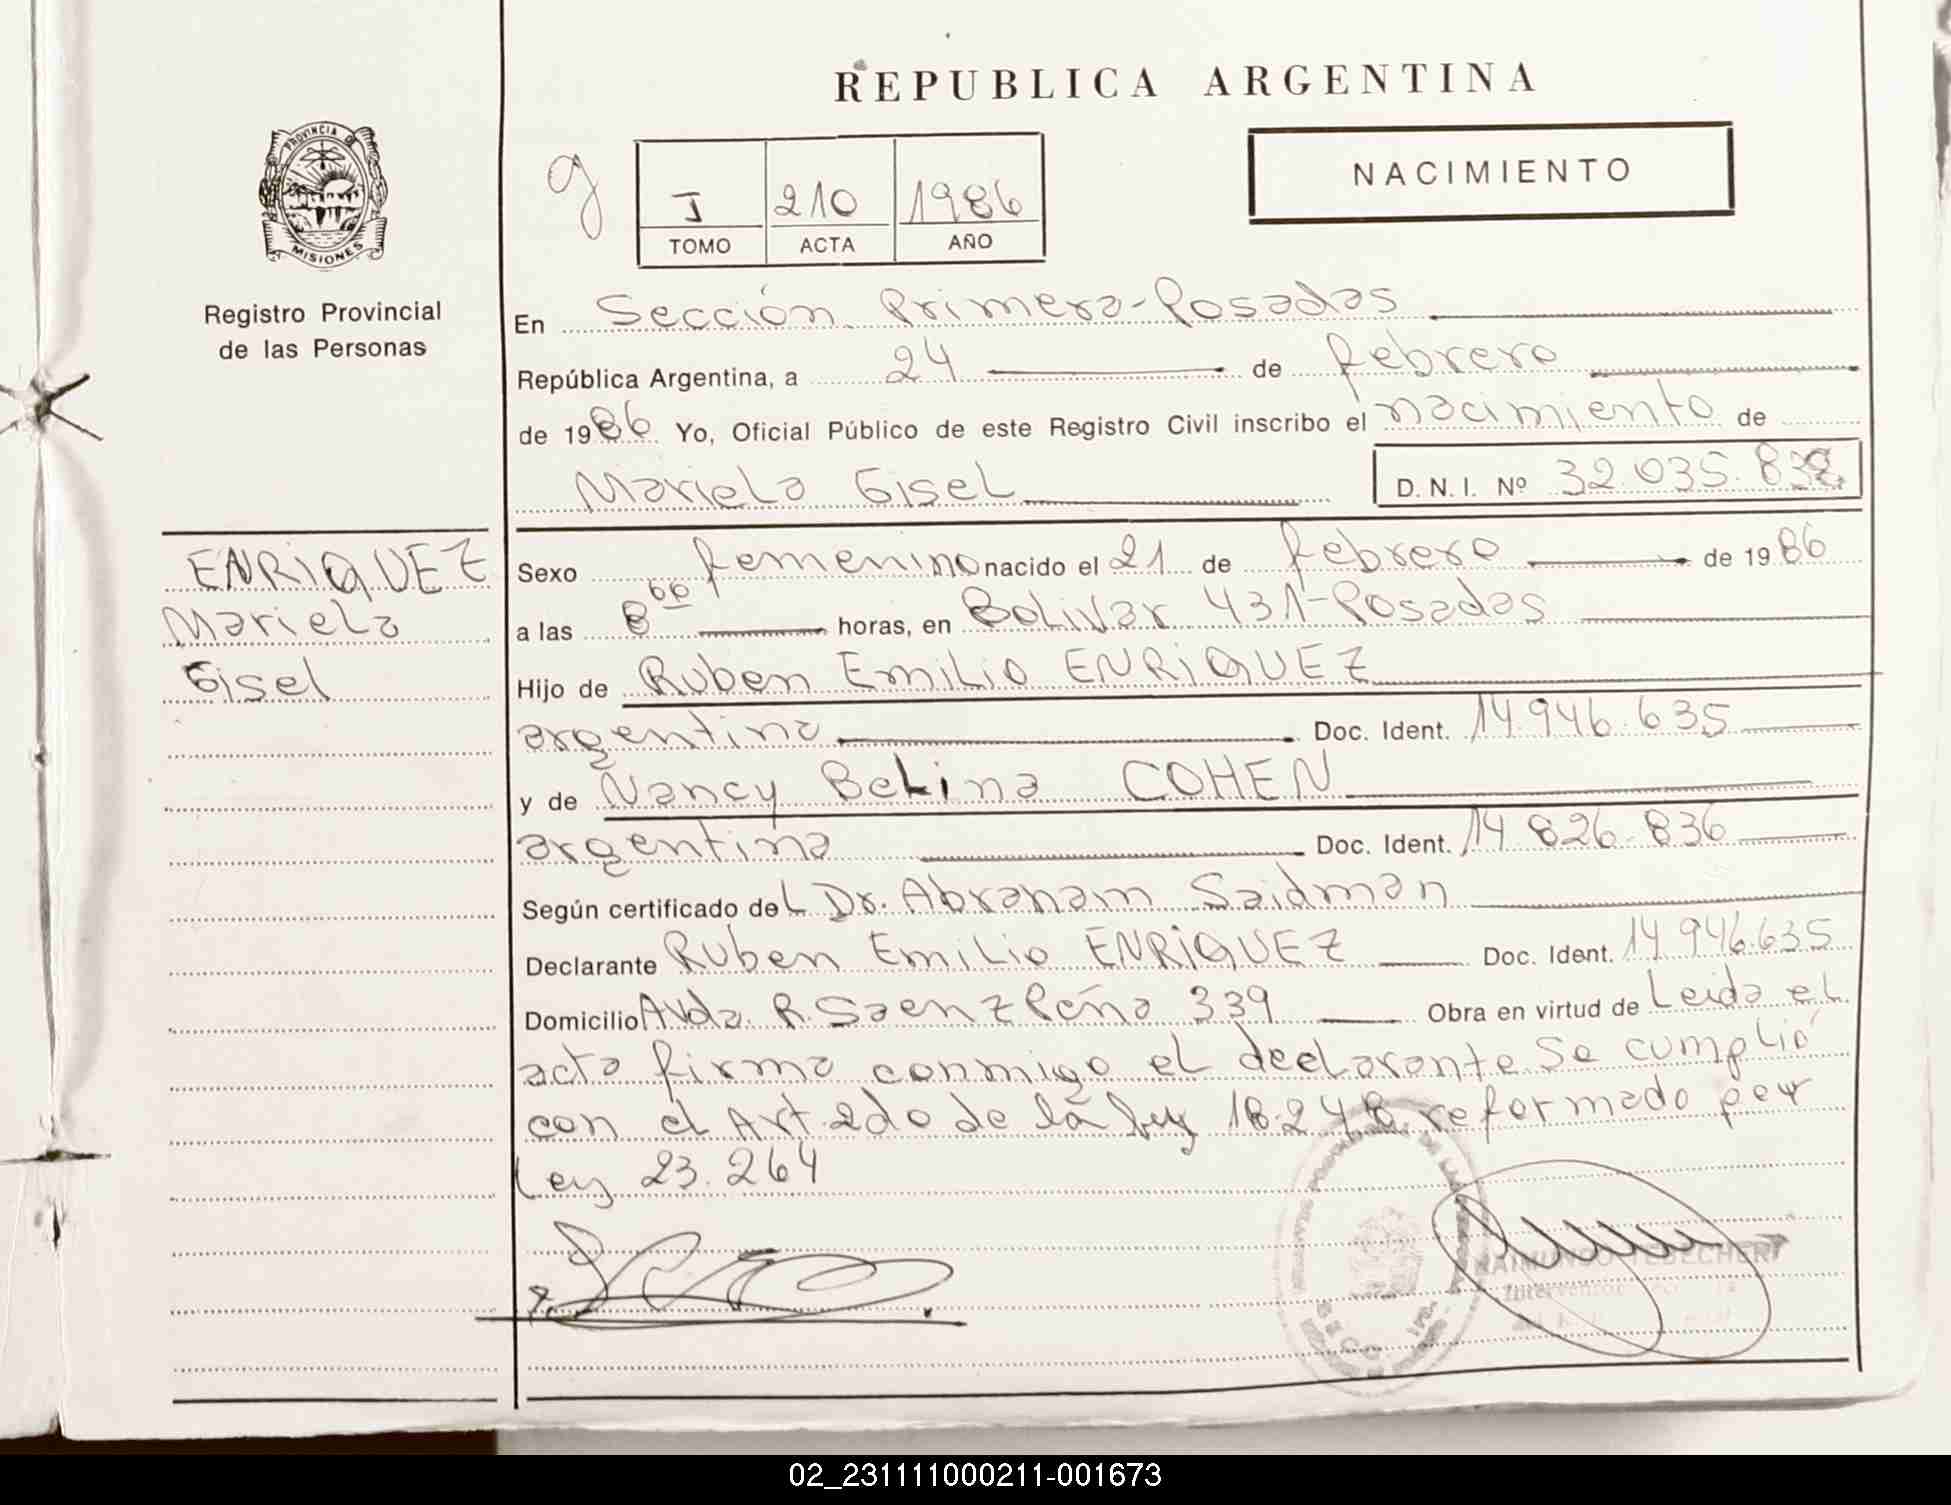 REPUBLICA ARGENTINA
PROVINCIA DE
MISIONES
Registro Provincial
de las Personas
g
I 210 1986
TOMO ACTA AÑO
NACIMIENTO
En Sección Primera-Posadas
República Argentina, a 24 de febrero
de 1986 Yo, Oficial Público de este Registro Civil inscribo el nacimiento de
Mariela Gisel D. N. I. Nº 32.035.832
ENRIQUEZ
Mariela
Gisel
Sexo femenino nacido el 21 de febrero de 1986
a las 8 00 horas, en Bolivar 431-Posadas
Hijo de Ruben Emilio ENRIQUEZ
argentina Doc. Ident. 14.946.635
y de Nancy Belina COHEN
argentina Doc. Ident. 14 826.836
Según certificado del Dr. Abraham Saidman
Declarante Ruben Emilio ENRIQUEZ Doc. Ident. 14 946.635
Domicilio Avda. R. Saenz Peña 339 Obra en virtud de Leida el
acta firma conmigo el declarante Se cumplió
con el Art. 2do de la ley 18.248 reformado por
Ley 23.264
02_231111000211-001673